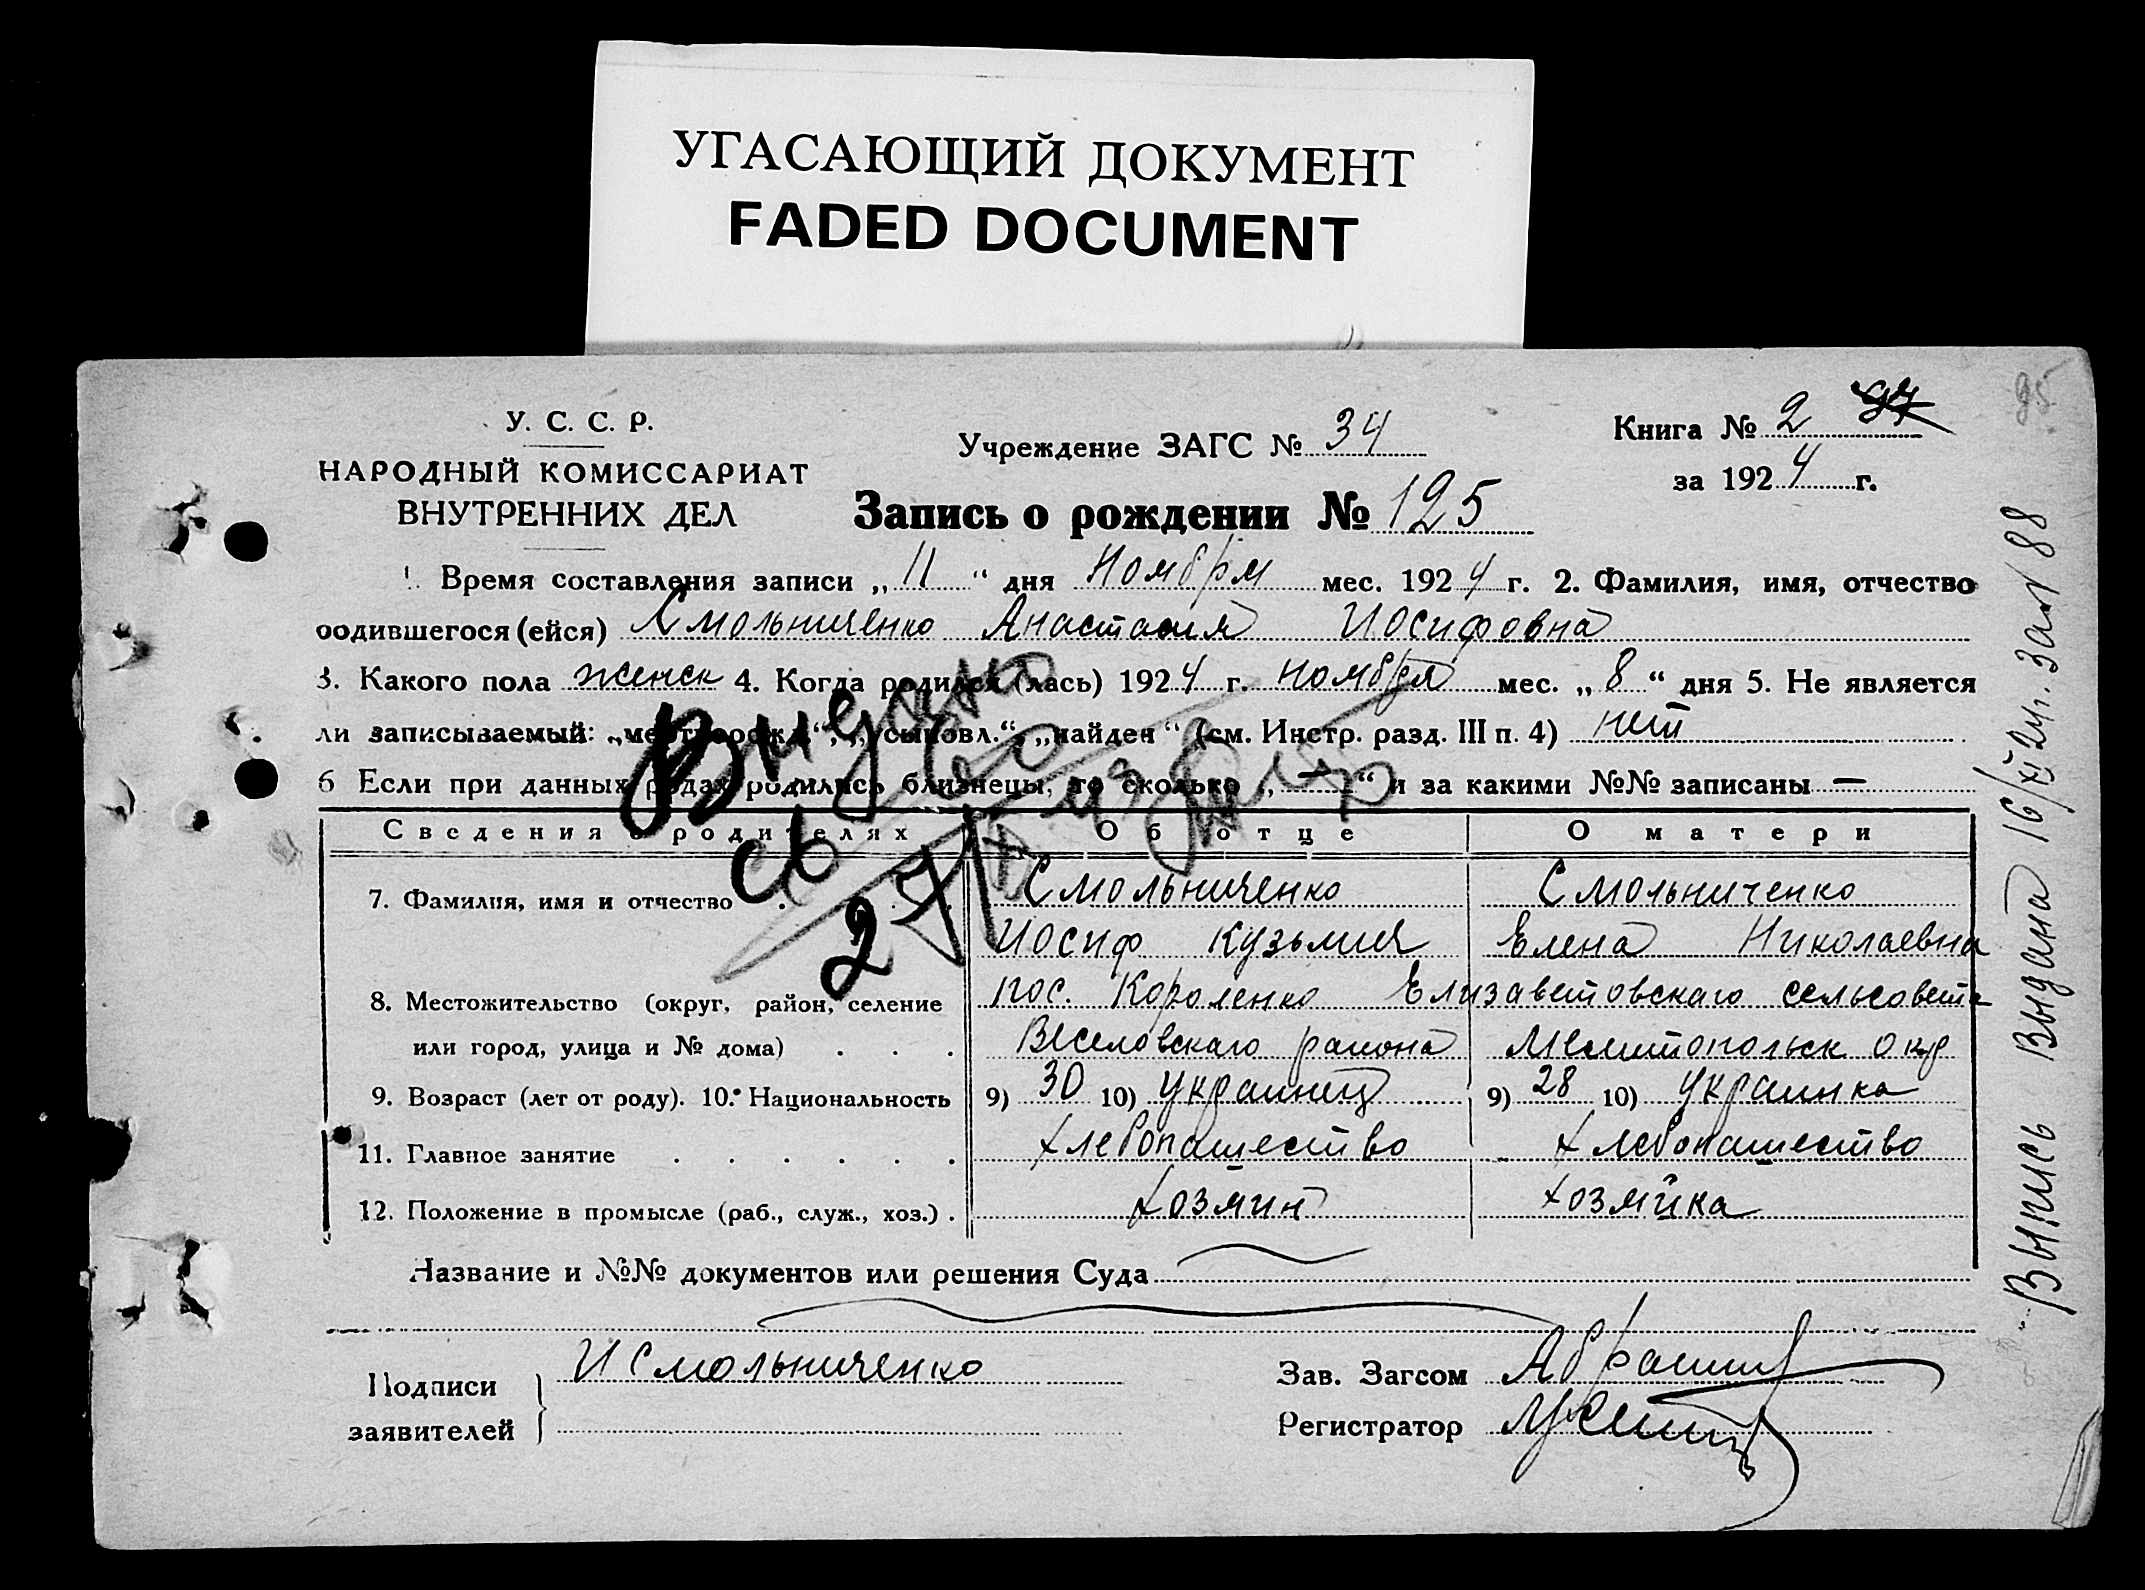 УГАСАЮЩИЙ ДОКУМЕНТ
FADED DOCUMENT
У. С. С. Р.
НАРОДНЫЙ КОМИССАРИАТ
ВНУТРЕННИХ ДЕЛ
Учреждение ЗАГС № 34
Книга № 2
за 1924 г.
Запись о рождении № 125
1. Время составления записи „11“ дня ноября мес. 1924 г. 2. Фамилия, имя, отчество
родившегося (ейся) Смольниченко Анастасия Иосифовна
3. Какого пола женск 4. Когда родился (лась) 1924 г. ноября мес. „8“ дня 5. Не является
ли записываемый: „мертворожд.“, „усыновл.“, „найден“ (см. Инстр. разд. III п. 4) нет
6 Если при данных родах родились близнецы, то сколько „—“ и за какими №№ записаны —
Сведения о родителях Об отце О матери
7. Фамилия, имя и отчество Смольниченко Смольниченко
Иосиф Кузьмич Елена Николаевна
8. Местожительство (округ, район, селение пос. Короленко Елизаветовскаго сельсовета
или город, улица и № дома) Веселовскаго района Мелитопольск окр
9. Возраст (лет от роду). 10. Национальность 9) 30 10) украинец 9) 28 10) украинка
11. Главное занятие хлебопашество хлебопашество
12. Положение в промысле (раб., служ., хоз.) хозяин хозяйка
Название и №№ документов или решения Суда
Подписи
заявителей
И Смольниченко
Зав. Загсом
Регистратор
Выпись выдана 16/XI 24г. за № 88
Видано